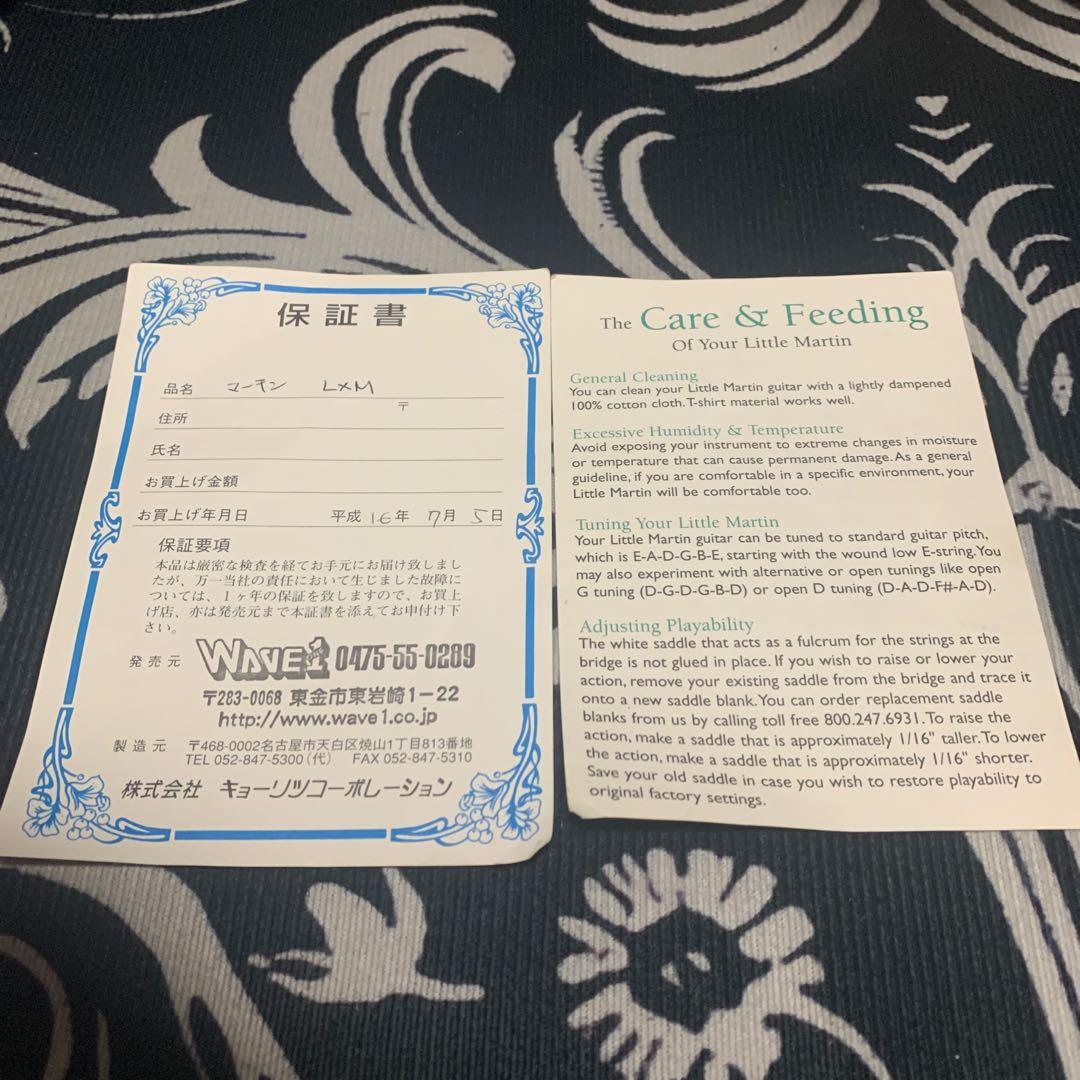 保証書
品名 マーチン LXM
〒
住所
氏名
お買上げ金額
お買上げ年月日 平成16年 7月 5日
保証要項
本品は厳密な検査を経てお手元にお届け致しまし
たが、万一当社の責任において生じました故障に
ついては、1ヶ年の保証を致しますので、お買上
げ店、亦は発売元まで本証書を添えてお申付け下
さい。
発売元 WAVE1 0475-55-0289
〒283-0068 東金市東岩崎1-22
http://www.wave1.co.jp
製造元 〒468-0002名古屋市天白区焼山1丁目813番地
TEL 052-847-5300(代) FAX 052-847-5310
株式会社 キョーリツコーポレーション
The Care & Feeding
Of Your Little Martin
General Cleaning
You can clean your Little Martin guitar with a lightly dampened
100% cotton cloth. T-shirt material works well.
Excessive Humidity & Temperature
Avoid exposing your instrument to extreme changes in moisture
or temperature that can cause permanent damage. As a general
guideline, if you are comfortable in a specific environment, your
Little Martin will be comfortable too.
Tuning Your Little Martin
Your Little Martin guitar can be tuned to standard guitar pitch,
which is E-A-D-G-B-E, starting with the wound low E-string. You
may also experiment with alternative or open tunings like open
G tuning (D-G-D-G-B-D) or open D tuning (D-A-D-F#-A-D).
Adjusting Playability
The white saddle that acts as a fulcrum for the strings at the
bridge is not glued in place. If you wish to raise or lower your
action, remove your existing saddle from the bridge and trace it
onto a new saddle blank. You can order replacement saddle
blanks from us by calling toll free 800.247.6931. To raise the
action, make a saddle that is approximately 1/16" taller. To lower
the action, make a saddle that is approximately 1/16" shorter.
Save your old saddle in case you wish to restore playability to
original factory settings.